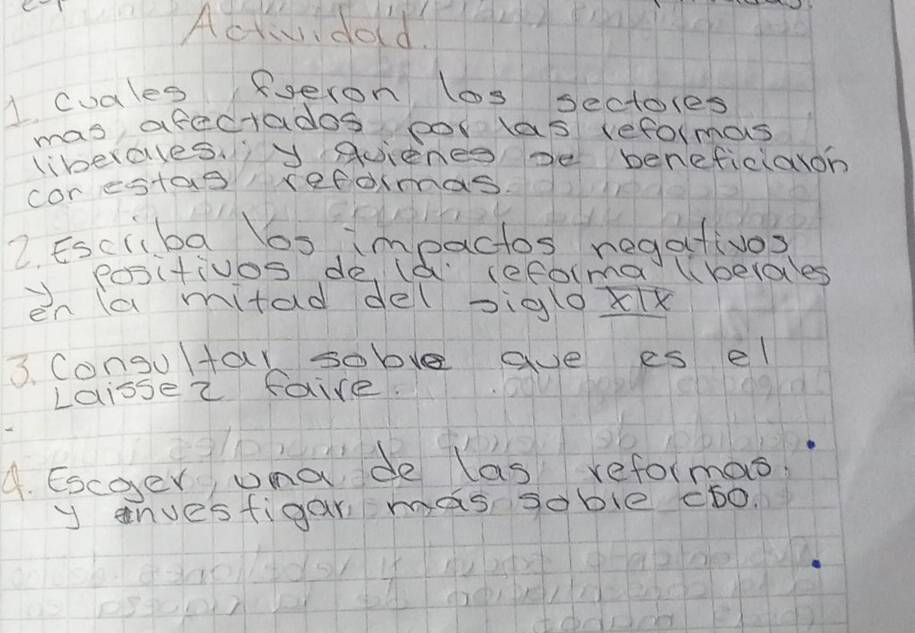 Actividad.
1. Cuales fueron los sectores
mas afectados por las reformas
liberales, y quienes se beneficiaron
con estas reformas.
2. Escriba los impactos negativos
y positivos de la reforma liberales
en la mitad del siglo XIX
3. Consultar sobre que es el
Laissez faire.
4. Escoger una de las reformas
y investigar más soble eso.